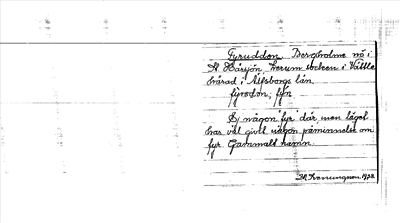 Fyruddon. Bergholme nö i
St. Härsjön, Lerum socken i Vättle
härad i Älfsborgs län.
fýrodon, fýn
Ej någon "fyr" där, men läget
har väl givit någon påminnelse om
fyr. Gammalt namn.
1932